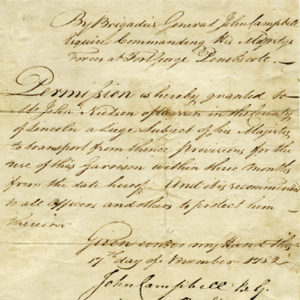 By Brigadier General John Campbell
Esquire Commanding His Majestys
Forces at Fort George Penobscote.
Permission is hereby granted to
Mr. John Nutson of Waren in the County
of Lincoln a Liege Subject of his Majestys
to transport from thence provisions for the
use of this Garrison within three months
from the date hereof And it is recommen
to all Officers and others to protect him
therein
Given under my Hand this
17th day of November 1782
John Campbell B.G.